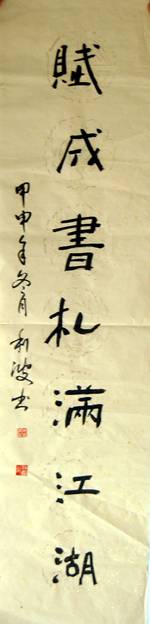 賦成書札滿江湖
甲申年冬月 利波书